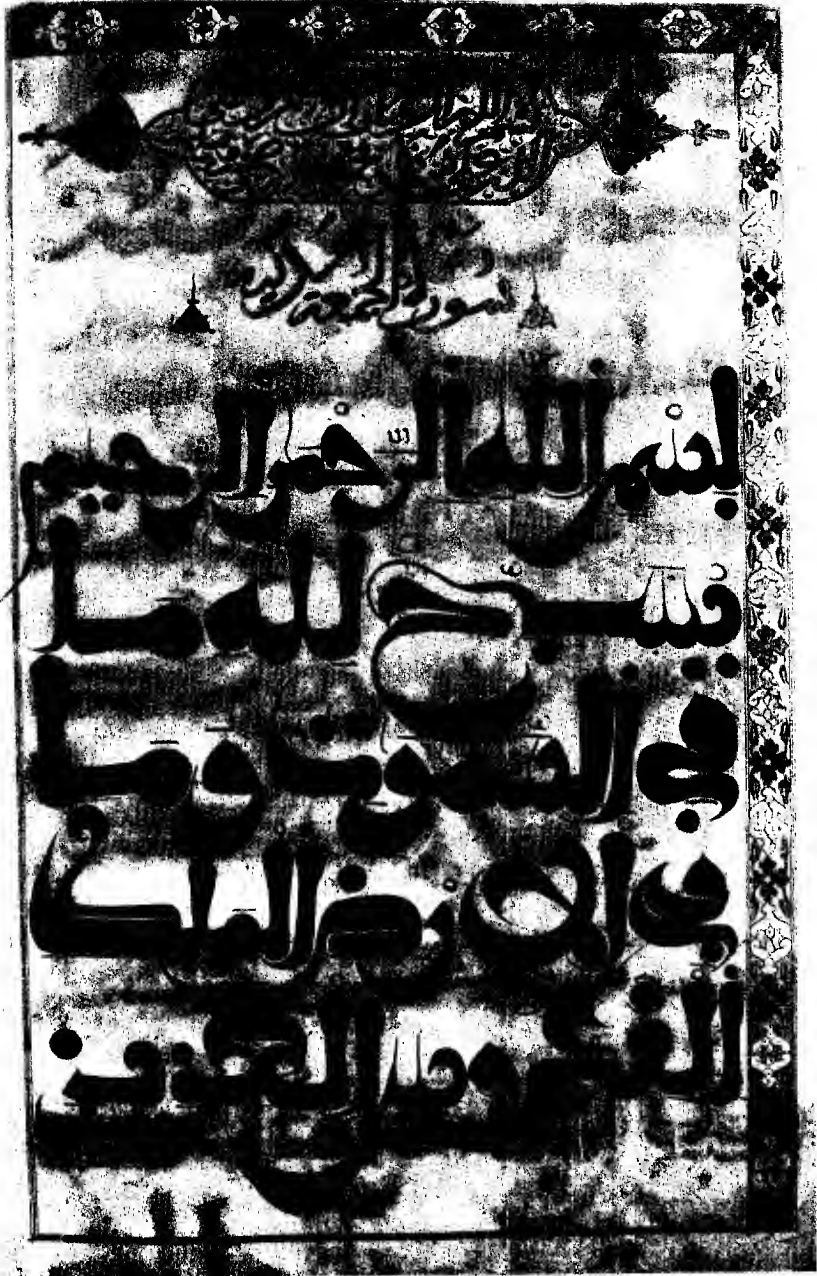 سورة الجمعة
بسم الله الرحمن الرحيم
يسبح لله ما
في السموت وما
في الارض الملك
القدوس العزيز